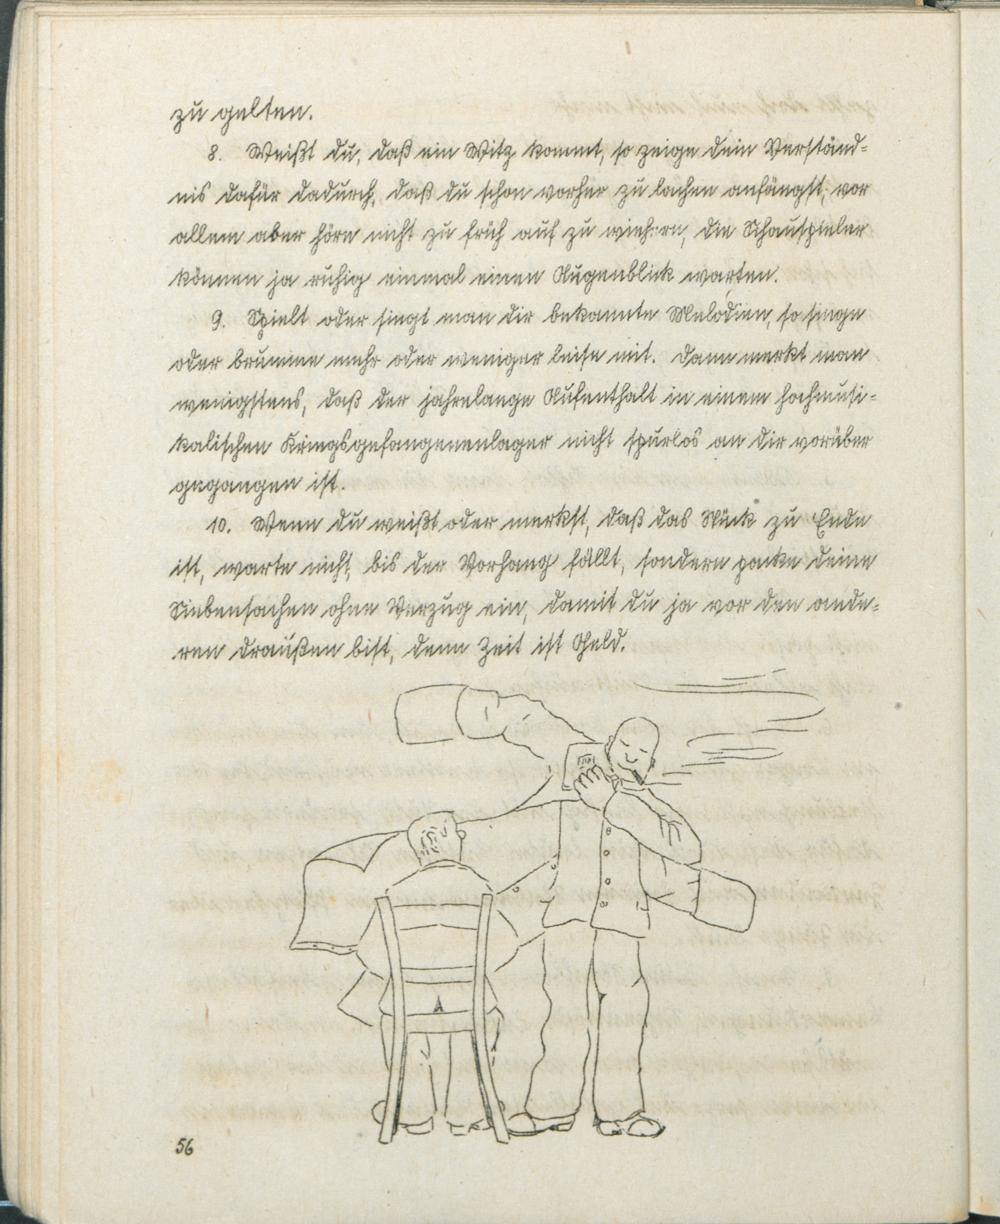 zu gelten.
8. Weißt du, daß ein Witz kommt, so zeige dein Verständ-
nis dafür dadurch, daß du schon vorher zu lachen anfängst, vor
allem aber höre nicht zu früh auf zu wiehern, die Schauspieler
können ja ruhig einmal einen Augenblick warten.
9. Spielt oder singt man dir bekannte Melodien, so singe
oder brumme mehr oder weniger leise mit. Dann merkt man
wenigstens, daß der jahrelange Aufenthalt in einem hochmusi-
kalischen Kriegsgefangenenlager nicht spurlos an dir vorüber
gegangen ist.
10. Wenn du weißt oder merkst, daß das Stück zu Ende
ist, warte nicht, bis der Vorhang fällt, sondern packe deine
Siebensachen ohne Verzug ein, damit du ja vor den ande-
ren draußen bist, denn Zeit ist Geld.
56